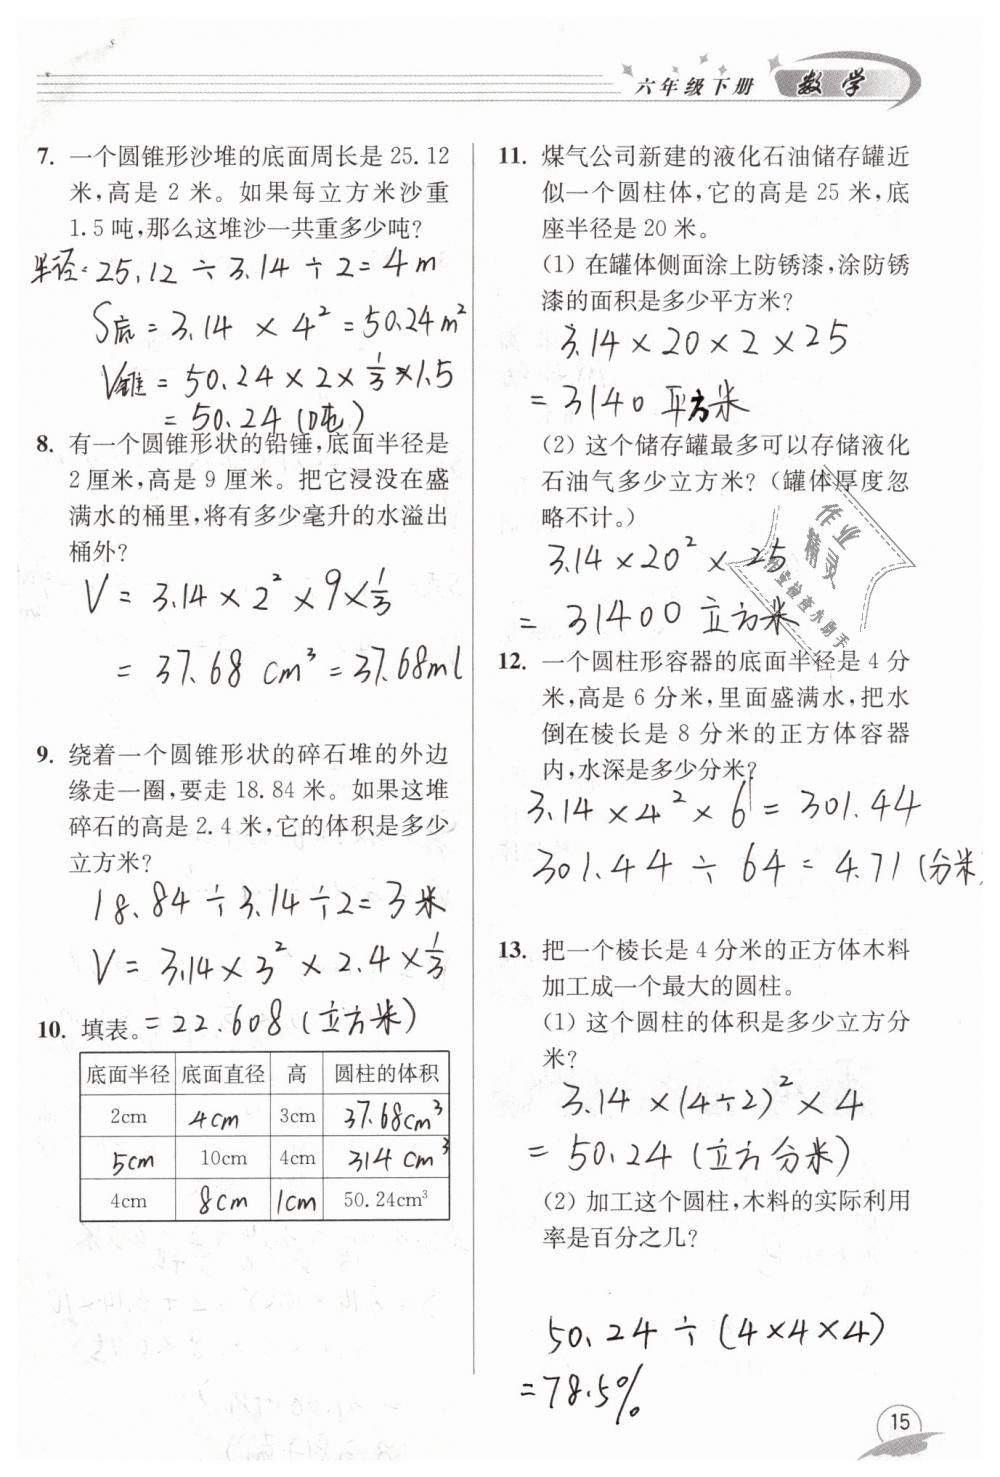 六年级下册 数学
7. 一个圆锥形沙堆的底面周长是25.12
米,高是2米。如果每立方米沙重
1.5吨,那么这堆沙一共重多少吨?
半径:25.12÷3.14÷2=4m
S底=3.14×4²=50.24m²
V锥=50.24×2×1/3×1.5
=50.24(吨)
8. 有一个圆锥形状的铅锤,底面半径是
2厘米,高是9厘米。把它浸没在盛
满水的桶里,将有多少毫升的水溢出
桶外?
V=3.14×2²×9×1/3
=37.68cm³=37.68ml
9. 绕着一个圆锥形状的碎石堆的外边
缘走一圈,要走18.84米。如果这堆
碎石的高是2.4米,它的体积是多少
立方米?
18.84÷3.14÷2=3米
V=3.14×3²×2.4×1/3
=22.608(立方米)
10. 填表。
底面半径 底面直径 高 圆柱的体积
2cm 4cm 3cm 37.68cm³
5cm 10cm 4cm 314cm³
4cm 8cm 1cm 50.24cm³
11. 煤气公司新建的液化石油储存罐近
似一个圆柱体,它的高是25米,底
座半径是20米。
(1)在罐体侧面涂上防锈漆,涂防锈
漆的面积是多少平方米?
3.14×20×2×25
=3140平方米
(2)这个储存罐最多可以存储液化
石油气多少立方米?(罐体厚度忽
略不计。)
3.14×20²×25
=31400立方米
作业
精灵
作业检查小助手
12. 一个圆柱形容器的底面半径是4分
米,高是6分米,里面盛满水,把水
倒在棱长是8分米的正方体容器
内,水深是多少分米?
3.14×4²×6=301.44
301.44÷64=4.71(分米
13. 把一个棱长是4分米的正方体木料
加工成一个最大的圆柱。
(1)这个圆柱的体积是多少立方分
米?
3.14×(4÷2)²×4
=50.24(立方分米)
(2)加工这个圆柱,木料的实际利用
率是百分之几?
50.24÷(4×4×4)
=78.5%
15